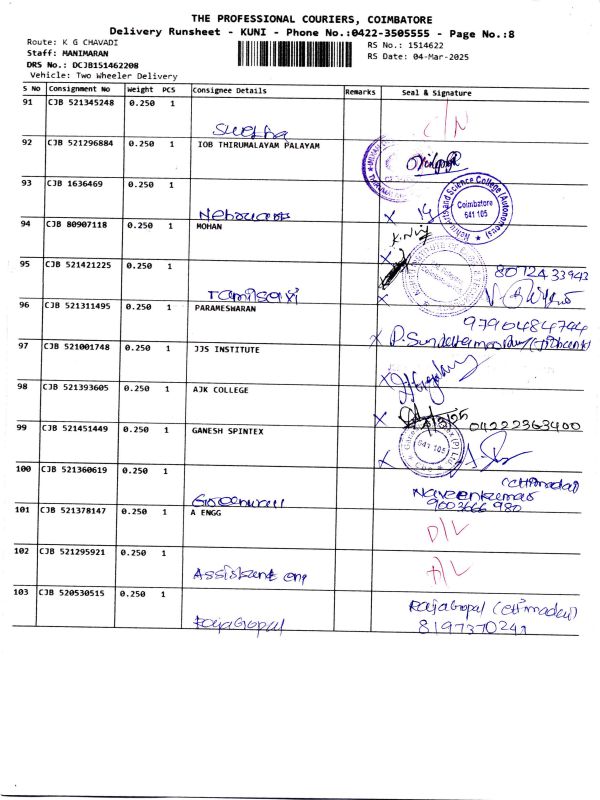 THE PROFESSIONAL COURIERS, COIMBATORE
Delivery Runsheet - KUNI - Phone No.:0422-3505555 - Page No.:8
Route: K G CHAVADI
RS No.: 1514622
Staff: MANIMARAN
RS Date: 04-Mar-2025
DRS No.: DCJB151462208
Vehicle: Two Wheeler Delivery
S No Consignment No Weight PCS Consignee Details Remarks Seal & Signature
91 CJB 521345248 0.250 1
92 CJB 521296884 0.250 1 IOB THIRUMALAYAM PALAYAM
93 CJB 1636469 0.250 1
Coimbatore
641 105
94 CJB 80907118 0.250 1 MOHAN
95 CJB 521421225 0.250 1
8072433943
96 CJB 521311495 0.250 1 PARAMESHARAN
9790484744
97 CJB 521001748 0.250 1 JJS INSTITUTE
98 CJB 521393605 0.250 1 AJK COLLEGE
04222363400
99 CJB 521451449 0.250 1 GANESH SPINTEX
641 105
100 CJB 521360619 0.250 1
(ettimadai)
Naveenkumar
9003666980
101 CJB 521378147 0.250 1 A ENGG
D/L
102 CJB 521295921 0.250 1
Assistant eng
103 CJB 520530515 0.250 1
RajaGopal (ettimadai)
RajaGopal
8197370241